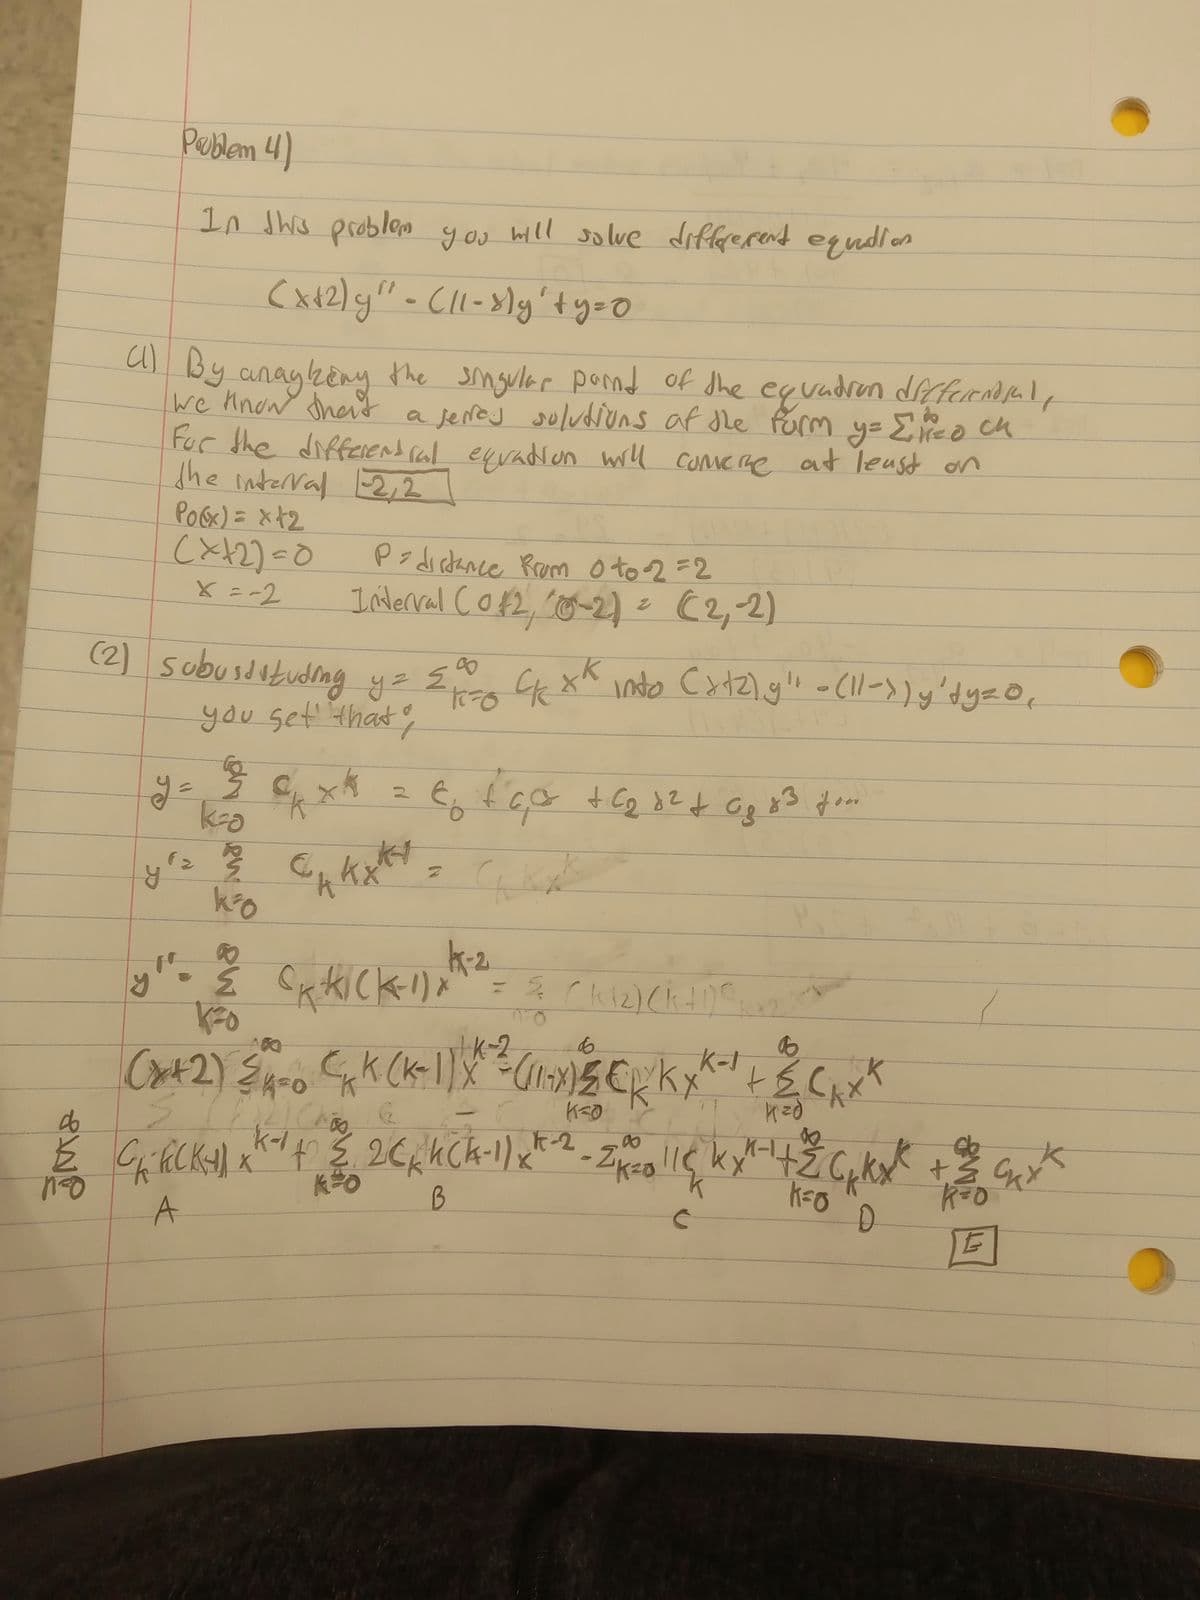 Problem 4)
In this problem you will solve different equation
(x+2)y'' - (11-x)y' + y = 0
(1) By the singular point of the
we know that a series solutions of the form y = Σ^∞_{k=0} ck
For the differential equation will converge at least on
the interval [-2,2]
P0(x) = x+2
(x+2) = 0 P = distance from 0 to -2 = 2
x = -2 Interval (0+2, 0-2) = (2,-2)
(2) y = Σ^∞_{k=0} C_k x^k into (x+2)y'' - (11-x)y' + y = 0,
you get that;
y = Σ^∞_{k=0} C_k x^k = C_0 + C_1 x + C_2 x^2 + C_3 x^3 + ...
y' = Σ^∞_{k=0} C_k k x^{k-1} =
y'' = Σ^∞_{k=0} C_k k(k-1) x^{k-2} = Σ (k+2)(k+1)
(x+2) Σ^∞_{k=0} C_k k(k-1) x^{k-2} - (11-x) Σ^∞_{k=0} C_k k x^{k-1} + Σ^∞_{k=0} C_k x^k
Σ^∞_{n=0} C_k k(k-1) x^{k-1} + Σ^∞_{k=0} 2C_k k(k-1) x^{k-2} - Σ^∞_{k=0} 11C_k k x^{k-1} + Σ^∞_{k=0} C_k k x^k + Σ^∞_{k=0} C_k x^k
A B C D E